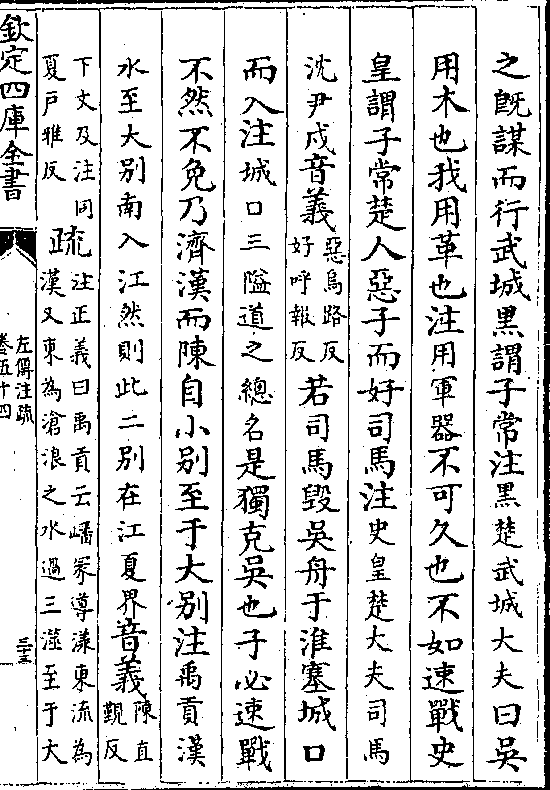 之既謀而行武城黒謂子常注黒楚武城大夫曰吳
用木也我用革也注用軍器不可久也不如速戰史
皇謂子常楚人惡子而好司馬注史皇楚大夫司馬
沈尹戍音義惡烏路反好呼報反若司馬毀吳舟于淮塞城口
而入注城口三隘道之總名是獨克吳也子必速戰
不然不免乃濟漢而陳自小别至于大别注禹貢漢
水至大别南入江然則此二别在江夏界音義陳直覲反
下文及注同夏戸雅反疏注正義曰禹貢云嶓冢導漾東流為漢又東為滄浪之水過三澨至于大
欽定四庫全書
左傳注疏
卷五十四
三十五